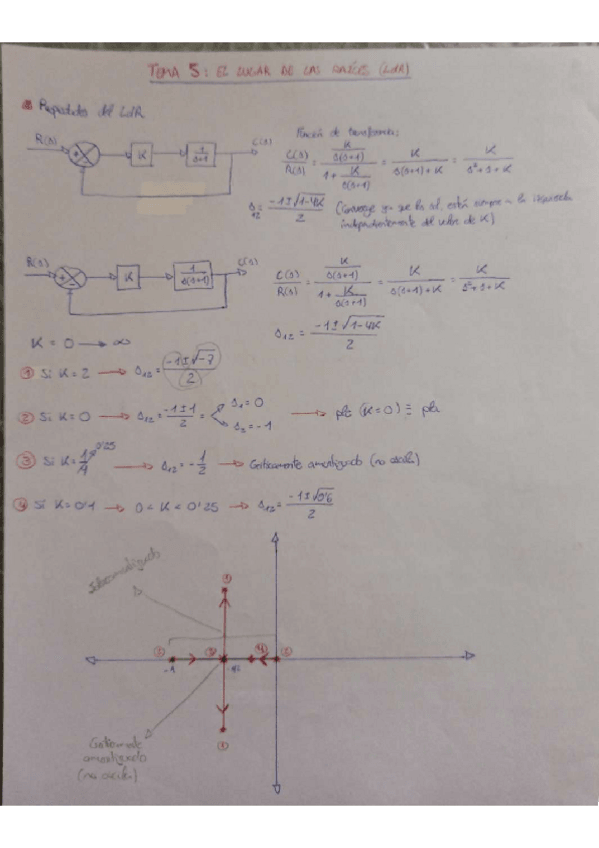 TEMA 5: EL LUGAR DE LAS RAÍCES (LdR)
Propiedades del LdR
R(s) + K 1/(s+1) C(s)
Función de transferencia:
C(s)/R(s) = (K/(s(s+1)))/(1 + K/(s(s+1))) = K/(s(s+1)+K) = K/(s²+s+K)
s12 = (-1±√1-4K)/2 (Converge ya que las sol. están siempre a la izquierda
independientemente del valor de K)
R(s) + - K 1/(s(s+1)) C(s)
C(s)/R(s) = (K/(s(s+1)))/(1 + K/(s(s+1))) = K/(s(s+1)+K) = K/(s²+s+K)
s12 = (-1±√1-4K)/2
K = 0 → ∞
① Si K=2 → s12 = (-1±√-7)/2
② Si K=0 → s12 = (-1±1)/2 = s1=0 s2=-1 → plc (K=0) ≡ pla
③ Si K=1/4 0'25 → s12 = -1/2 → Críticamente amortiguado (no oscila)
④ Si K=0'1 → 0<K<0'25 → s12 = (-1±√0'6)/2
Sobreamortiguado
①
② ③ ④ ②
-1 -1/2
①
Críticamente
amortiguado
(no oscila)